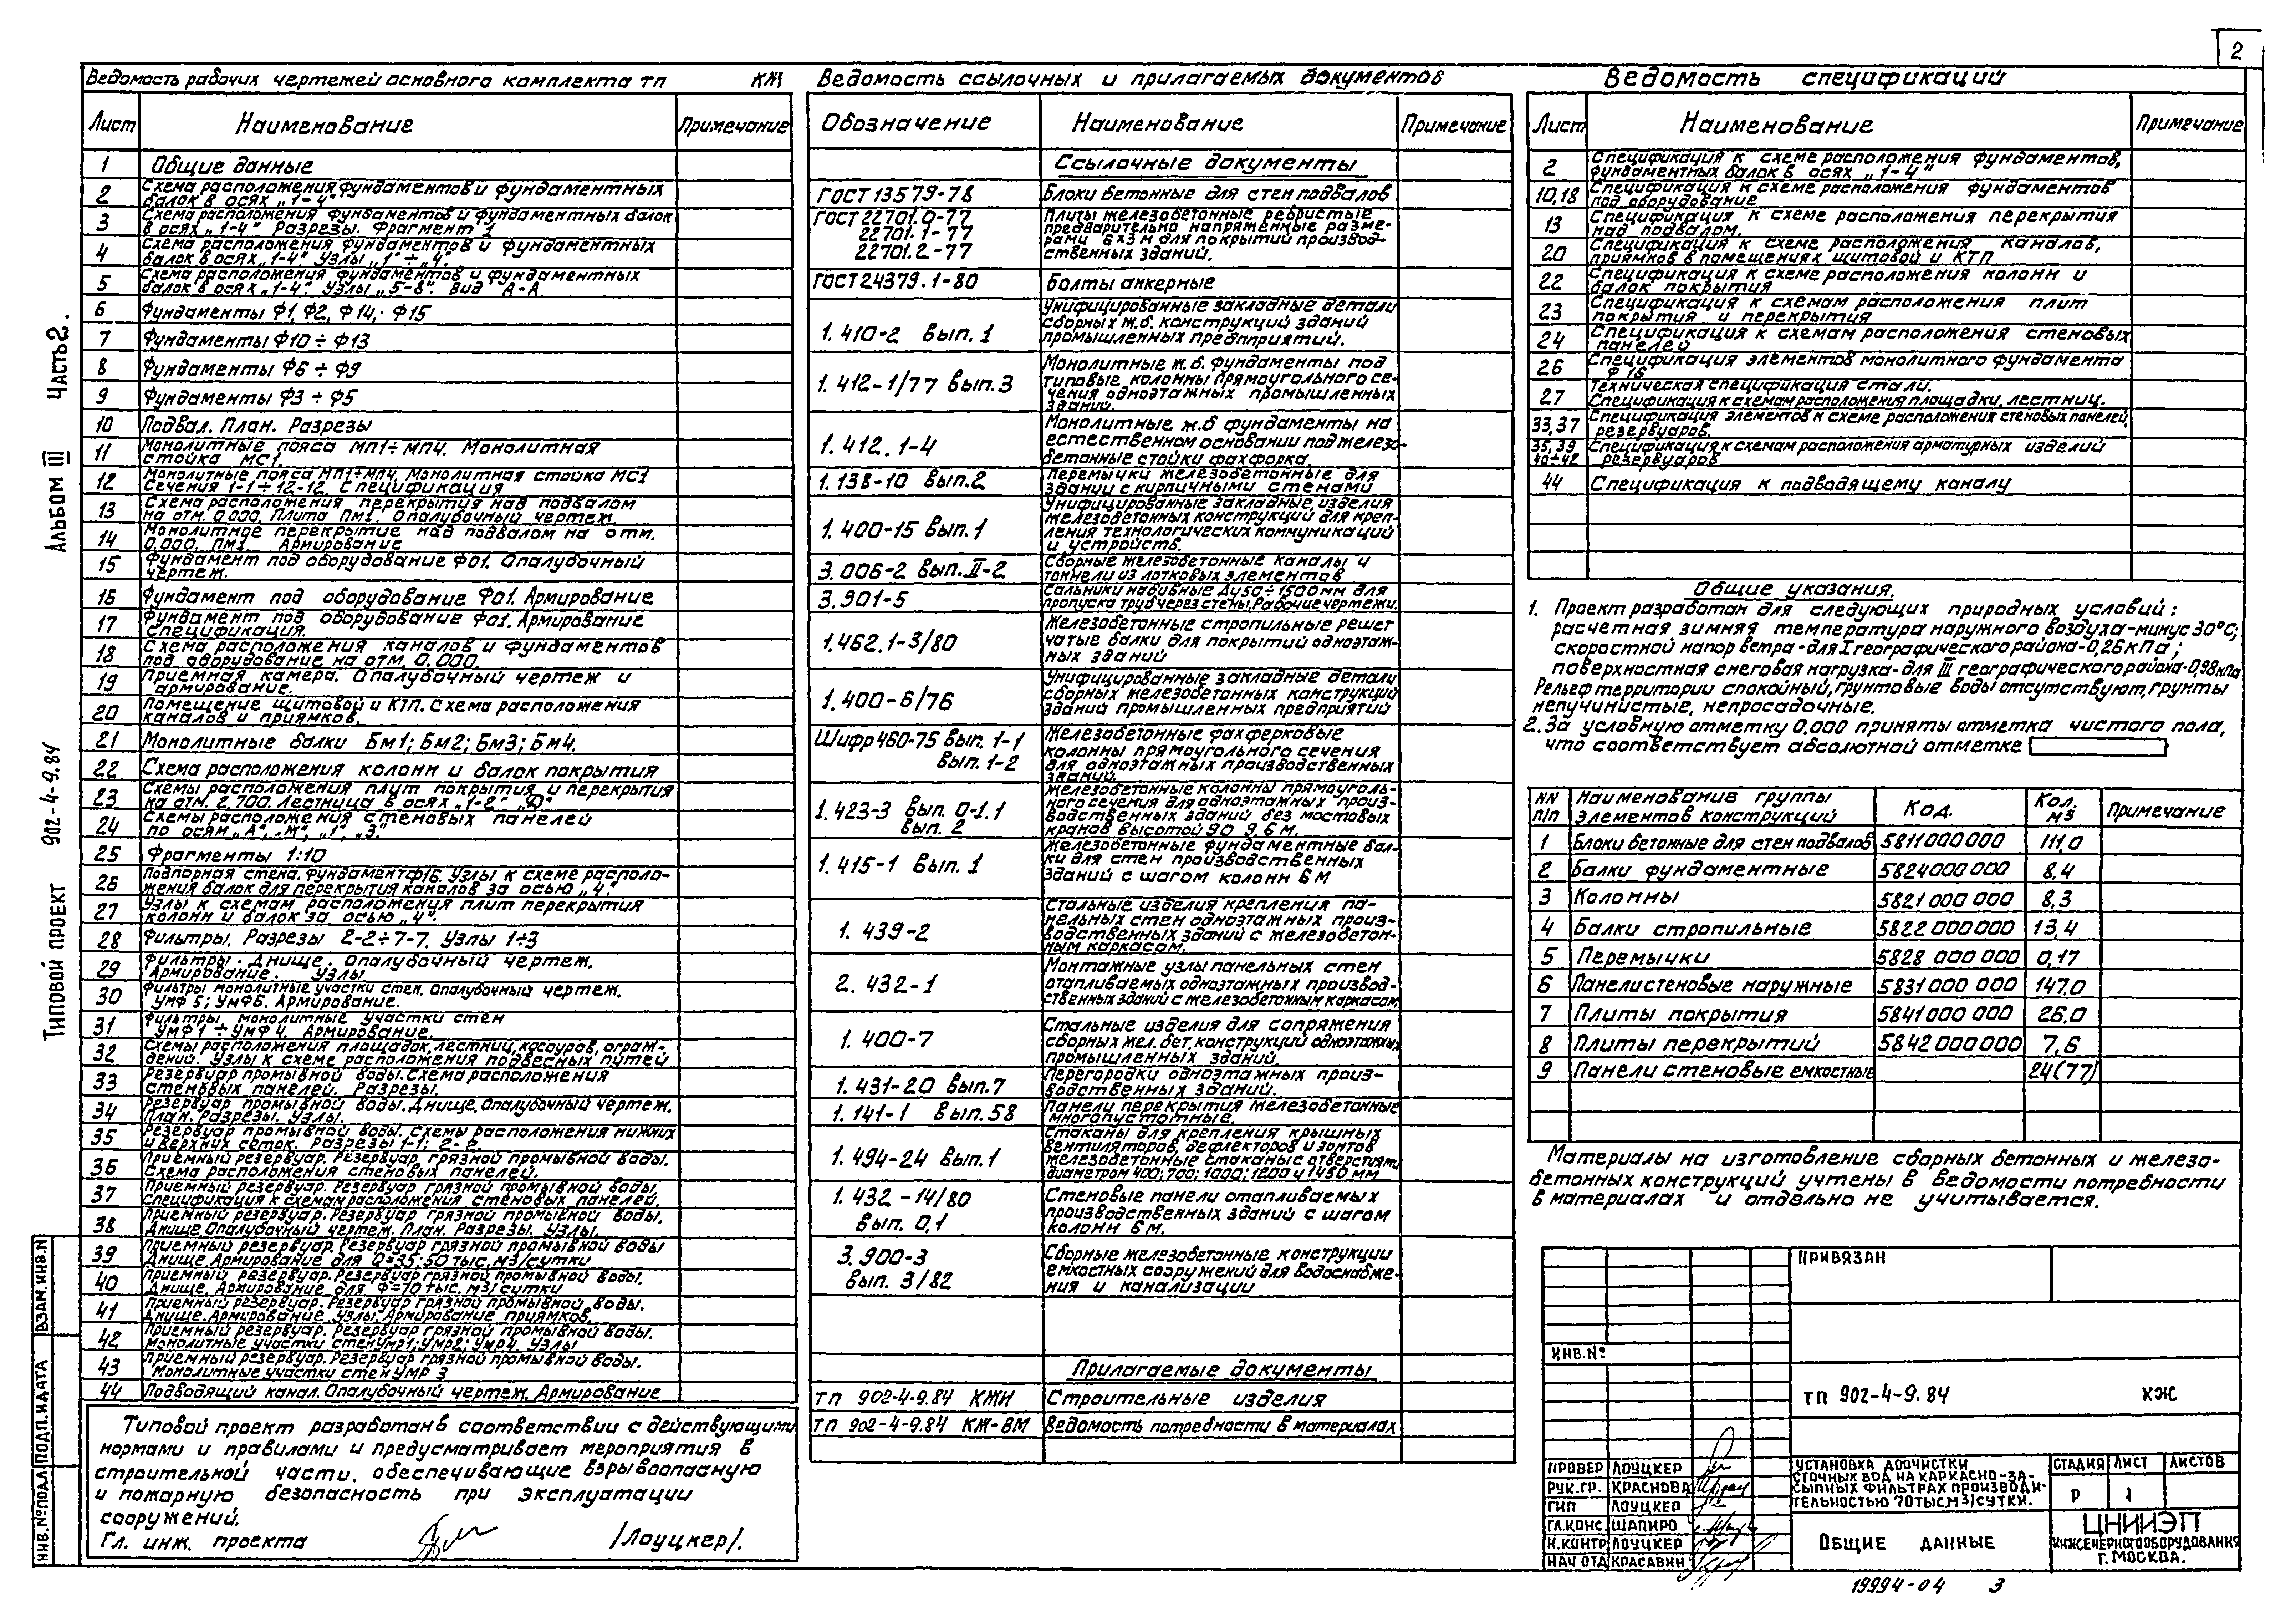 2
Ведомость рабочих чертежей основного комплекта ТП КЖ
Лист Наименование Примечание
1 Общие данные
2 Схема расположения фундаментов и фундаментных
балок в осях „1-4"
3 Схема расположения фундаментов и фундаментных балок
в осях „1-4" Разрезы. Фрагмент 1
4 Схема расположения фундаментов и фундаментных
балок в осях „1-4". Узлы „1"÷„4".
5 Схема расположения фундаментов и фундаментных
балок в осях „1-4". Узлы „5-8". Вид „А-А
6 Фундаменты Ф1, Ф2, Ф14, Ф15
7 Фундаменты Ф10÷Ф13
8 Фундаменты Ф6÷Ф9
9 Фундаменты Ф3÷Ф5
10 Подвал. План. Разрезы
11 Монолитные пояса МП1÷МП4. Монолитная
стойка МС1.
12 Монолитные пояса МП1÷МП4. Монолитная стойка МС1
Сечения 1-1÷12-12. Спецификация
13 Схема расположения перекрытия над подвалом
на отм. 0.000. Плита Пм1. Опалубочный чертеж.
14 Монолитное перекрытие над подвалом на отм.
0.000. ПМ1. Армирование
15 Фундамент под оборудование Ф01. Опалубочный
чертеж.
16 Фундамент под оборудование Ф01. Армирование
17 Фундамент под оборудование Ф01. Армирование
Спецификация.
18 Схема расположения каналов и фундаментов
под оборудование на отм. 0.000.
19 Приемная камера. Опалубочный чертеж и
армирование.
20 Помещение щитовой и КТП. Схема расположения
каналов и приямков.
21 Монолитные балки Бм1; Бм2; Бм3; Бм4.
22 Схема расположения колонн и балок покрытия
23 Схемы расположения плит покрытия и перекрытия
на отм. 2.700. Лестница в осях „1-2"
24 Схемы расположения стеновых панелей
по осям „А", „Ж", „1", „3."
25 Фрагменты 1:10
26 Подпорная стена. Фундамент Ф16. Узлы к схеме располо-
жения балок для перекрытия каналов за осью „4".
27 Узлы к схемам расположения плит перекрытия
колонн и балок за осью „4".
28 Фильтры. Разрезы 2-2÷7-7. Узлы 1÷3
29 Фильтры. Днище. Опалубочный чертеж.
Армирование. Узлы
30 Фильтры монолитные участки стен. Опалубочный чертеж.
УмФ5; УмФ6. Армирование.
31 Фильтры, монолитные участки стен
УмФ1÷УмФ4. Армирование.
32 Схемы расположения площадок, лестниц, косоуров, ограж-
дений. Узлы к схеме расположения подвесных путей
33 Резервуар промывной воды. Схема расположения
стеновых панелей. Разрезы.
34 Резервуар промывной воды. Днище. Опалубочный чертеж.
План. Разрезы. Узлы.
35 Резервуар промывной воды. Схемы расположения нижних
и верхних сеток. Разрезы 1-1; 2-2.
36 Приемный резервуар. Резервуар грязной промывной воды.
Схема расположения стеновых панелей.
37 Приемный резервуар. Резервуар грязной промывной воды.
Спецификация к схемам расположения стеновых панелей.
38 Приемный резервуар. Резервуар грязной промывной воды.
Днище. Опалубочный чертеж. План. Разрезы. Узлы.
39 Приемный резервуар. Резервуар грязной промывной воды
Днище. Армирование для Q=35; 50 тыс. м3/сутки
40 Приемный резервуар. Резервуар грязной промывной воды.
Днище. Армирование для Q=70 тыс. м3/сутки
41 Приемный резервуар. Резервуар грязной промывной воды.
Днище. Армирование. Узлы. Армирование приямков.
42 Приемный резервуар. Резервуар грязной промывной воды.
Монолитные участки стен Умр1; Умр2; Умр4. Узлы
43 Приемный резервуар. Резервуар грязной промывной воды.
Монолитные участки стен УМР 3
44 Подводящий канал. Опалубочный чертеж. Армирование
Типовой проект разработан в соответствии с действующими
нормами и правилами и предусматривает мероприятия в
строительной части, обеспечивающие взрывоопасную
и пожарную безопасность при эксплуатации
сооружений.
Гл. инж. проекта /Лоуцкер/.
Ведомость ссылочных и прилагаемых документов
Обозначение Наименование Примечание
Ссылочные документы
ГОСТ 13579-78 Блоки бетонные для стен подвалов
ГОСТ 22701.0-77 Плиты железобетонные ребристые
22701.1-77 предварительно напряженные разме-
22701.2-77 рами 6х3 м для покрытий производ-
ственных зданий.
ГОСТ 24379.1-80 Болты анкерные
1.410-2 вып. 1 Унифицированные закладные детали
сборных ж.б. конструкций зданий
промышленных предприятий.
1.412-1/77 вып.3 Монолитные ж.б. фундаменты под
типовые колонны прямоугольного се-
чения одноэтажных промышленных
зданий.
1.412.1-4 Монолитные ж.б фундаменты на
естественном основании под железо-
бетонные стойки фахфорка.
1.138-10 вып.2 Перемычки железобетонные для
зданий с кирпичными стенами
1.400-15 вып.1 Унифицированные закладные изделия
железобетонных конструкций для креп-
ления технологических коммуникаций
и устройств.
3.006-2 вып.II-2 Сборные железобетонные каналы и
тоннели из лотковых элементов
3.901-5 Сальники набивные Ду50÷1500мм для
пропуска труб через стены. Рабочие чертежи.
1.462.1-3/80 Железобетонные стропильные решет
чатые балки для покрытий одноэтаж-
ных зданий
1.400-6/76 Унифицированные закладные детали
сборных железобетонных конструкций
зданий промышленных предприятий
Шифр 460-75 вып. 1-1 Железобетонные фахферковые
вып. 1-2 колонны прямоугольного сечения
для одноэтажных производственных
зданий.
1.423-3 вып. 0-1.1 Железобетонные колонны прямоуголь-
вып. 2 ного сечения для одноэтажных произ-
водственных зданий без мостовых
кранов высотой до 9.6 м.
1.415-1 вып. 1 Железобетонные фундаментные бал-
ки для стен производственных
зданий с шагом колонн 6 м
1.439-2 Стальные изделия крепления па-
нельных стен одноэтажных произ-
водственных зданий с железобетон-
ным каркасом.
2.432-1 Монтажные узлы панельных стен
отапливаемых одноэтажных производ-
ственных зданий с железобетонным каркасом
1.400-7 Стальные изделия для сопряжения
сборных жел. бет. конструкций одноэтажных
промышленных зданий.
1.431-20 вып.7 Перегородки одноэтажных произ-
водственных зданий.
1.141-1 вып.58 Панели перекрытия железобетонные
многопустотные.
1.494-24 вып.1 Стаканы для крепления крышных
вентиляторов, дефлекторов и зонтов
железобетонные стаканы с отверстиями
диаметром 400; 700; 1000; 1200 и 1450 мм
1.432-14/80 Стеновые панели отапливаемых
вып. 0,1 производственных зданий с шагом
колонн 6 м.
3.900-3 Сборные железобетонные конструкции
вып. 3/82 емкостных сооружений для водоснабже-
ния и канализации
Прилагаемые документы
ТП 902-4-9.84 КЖИ Строительные изделия
ТП 902-4-9.84 КЖ-ВМ Ведомость потребности в материалах
Ведомость спецификаций
Лист Наименование Примечание
2 Спецификация к схеме расположения фундаментов,
фундаментных балок в осях „1-4"
10,18 Спецификация к схеме расположения фундаментов
под оборудование
13 Спецификация к схеме расположения перекрытия
над подвалом.
20 Спецификация к схеме расположения каналов,
приямков в помещениях щитовой и КТП
22 Спецификация к схеме расположения колонн и
балок покрытия
23 Спецификация к схемам расположения плит
покрытия и перекрытия
24 Спецификация к схемам расположения стеновых
панелей
26 Спецификация элементов монолитного фундамента
Ф 16
27 Техническая спецификация стали.
Спецификация к схемам расположения площадки, лестниц.
33,37 Спецификация элементов к схеме расположения стеновых панелей
резервуаров.
35,39 Спецификация к схемам расположения арматурных изделий
40÷42 резервуаров
44 Спецификация к подводящему каналу
Общие указания.
1. Проект разработан для следующих природных условий:
расчетная зимняя температура наружного воздуха-минус 30°С;
скоростной напор ветра-для I географического района-0,26 кПа;
поверхностная снеговая нагрузка-для III географического района-0,98 кПа
Рельеф территории спокойный, грунтовые воды отсутствуют, грунты
непучинистые, непросадочные.
2. За условную отметку 0.000 приняты отметка чистого пола,
что соответствует абсолютной отметке
NN п/п Наименование группы элементов конструкций Код. Кол. м3 Примечание
1 Блоки бетонные для стен подвалов 5811000000 111,0
2 Балки фундаментные 5824000000 8,4
3 Колонны 5821000000 8,3
4 Балки стропильные 5822000000 13,4
5 Перемычки 5828000000 0,17
6 Панели стеновые наружные 5831000000 147.0
7 Плиты покрытия 5841000000 26.0
8 Плиты перекрытий 5842000000 7,6
9 Панели стеновые емкостные 24(77)
Материалы на изготовление сборных бетонных и железо-
бетонных конструкций учтены в ведомости потребности
в материалах и отдельно не учитывается.
ПРИВЯЗАН
ИНВ.№
ТП 902-4-9.84 КЖ
ПРОВЕР ЛОУЦКЕР
РУК.ГР. КРАСНОВА
ГИП ЛОУЦКЕР
ГЛ.КОНС. ШАПИРО
Н.КОНТР ЛОУЦКЕР
НАЧ ОТД КРАСАВИН
УСТАНОВКА ДООЧИСТКИ
СТОЧНЫХ ВОД НА КАРКАСНО-ЗА-
СЫПНЫХ ФИЛЬТРАХ ПРОИЗВОДИ-
ТЕЛЬНОСТЬЮ 70 ТЫС.М3/СУТКИ.
СТАДИЯ ЛИСТ ЛИСТОВ
Р 1
ОБЩИЕ ДАННЫЕ
ЦНИИЭП
ИНЖЕНЕРНОГО ОБОРУДОВАНИЯ
Г. МОСКВА.
19994-04 3
ТИПОВОЙ ПРОЕКТ 902-4-9.84 АЛЬБОМ III ЧАСТЬ 2.
ИНВ.№ПОДЛ. ПОДП. И ДАТА ВЗАМ. ИНВ. N